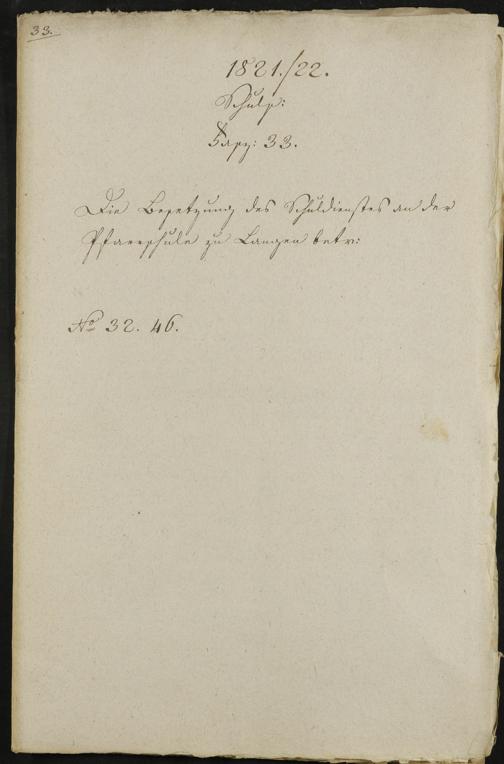 33.
1821./22.
Schulf:
Fasz: 33.
Die Besetzung des Schuldienstes an der
Pfarrschule zu Langen betr:
No 32. 46.